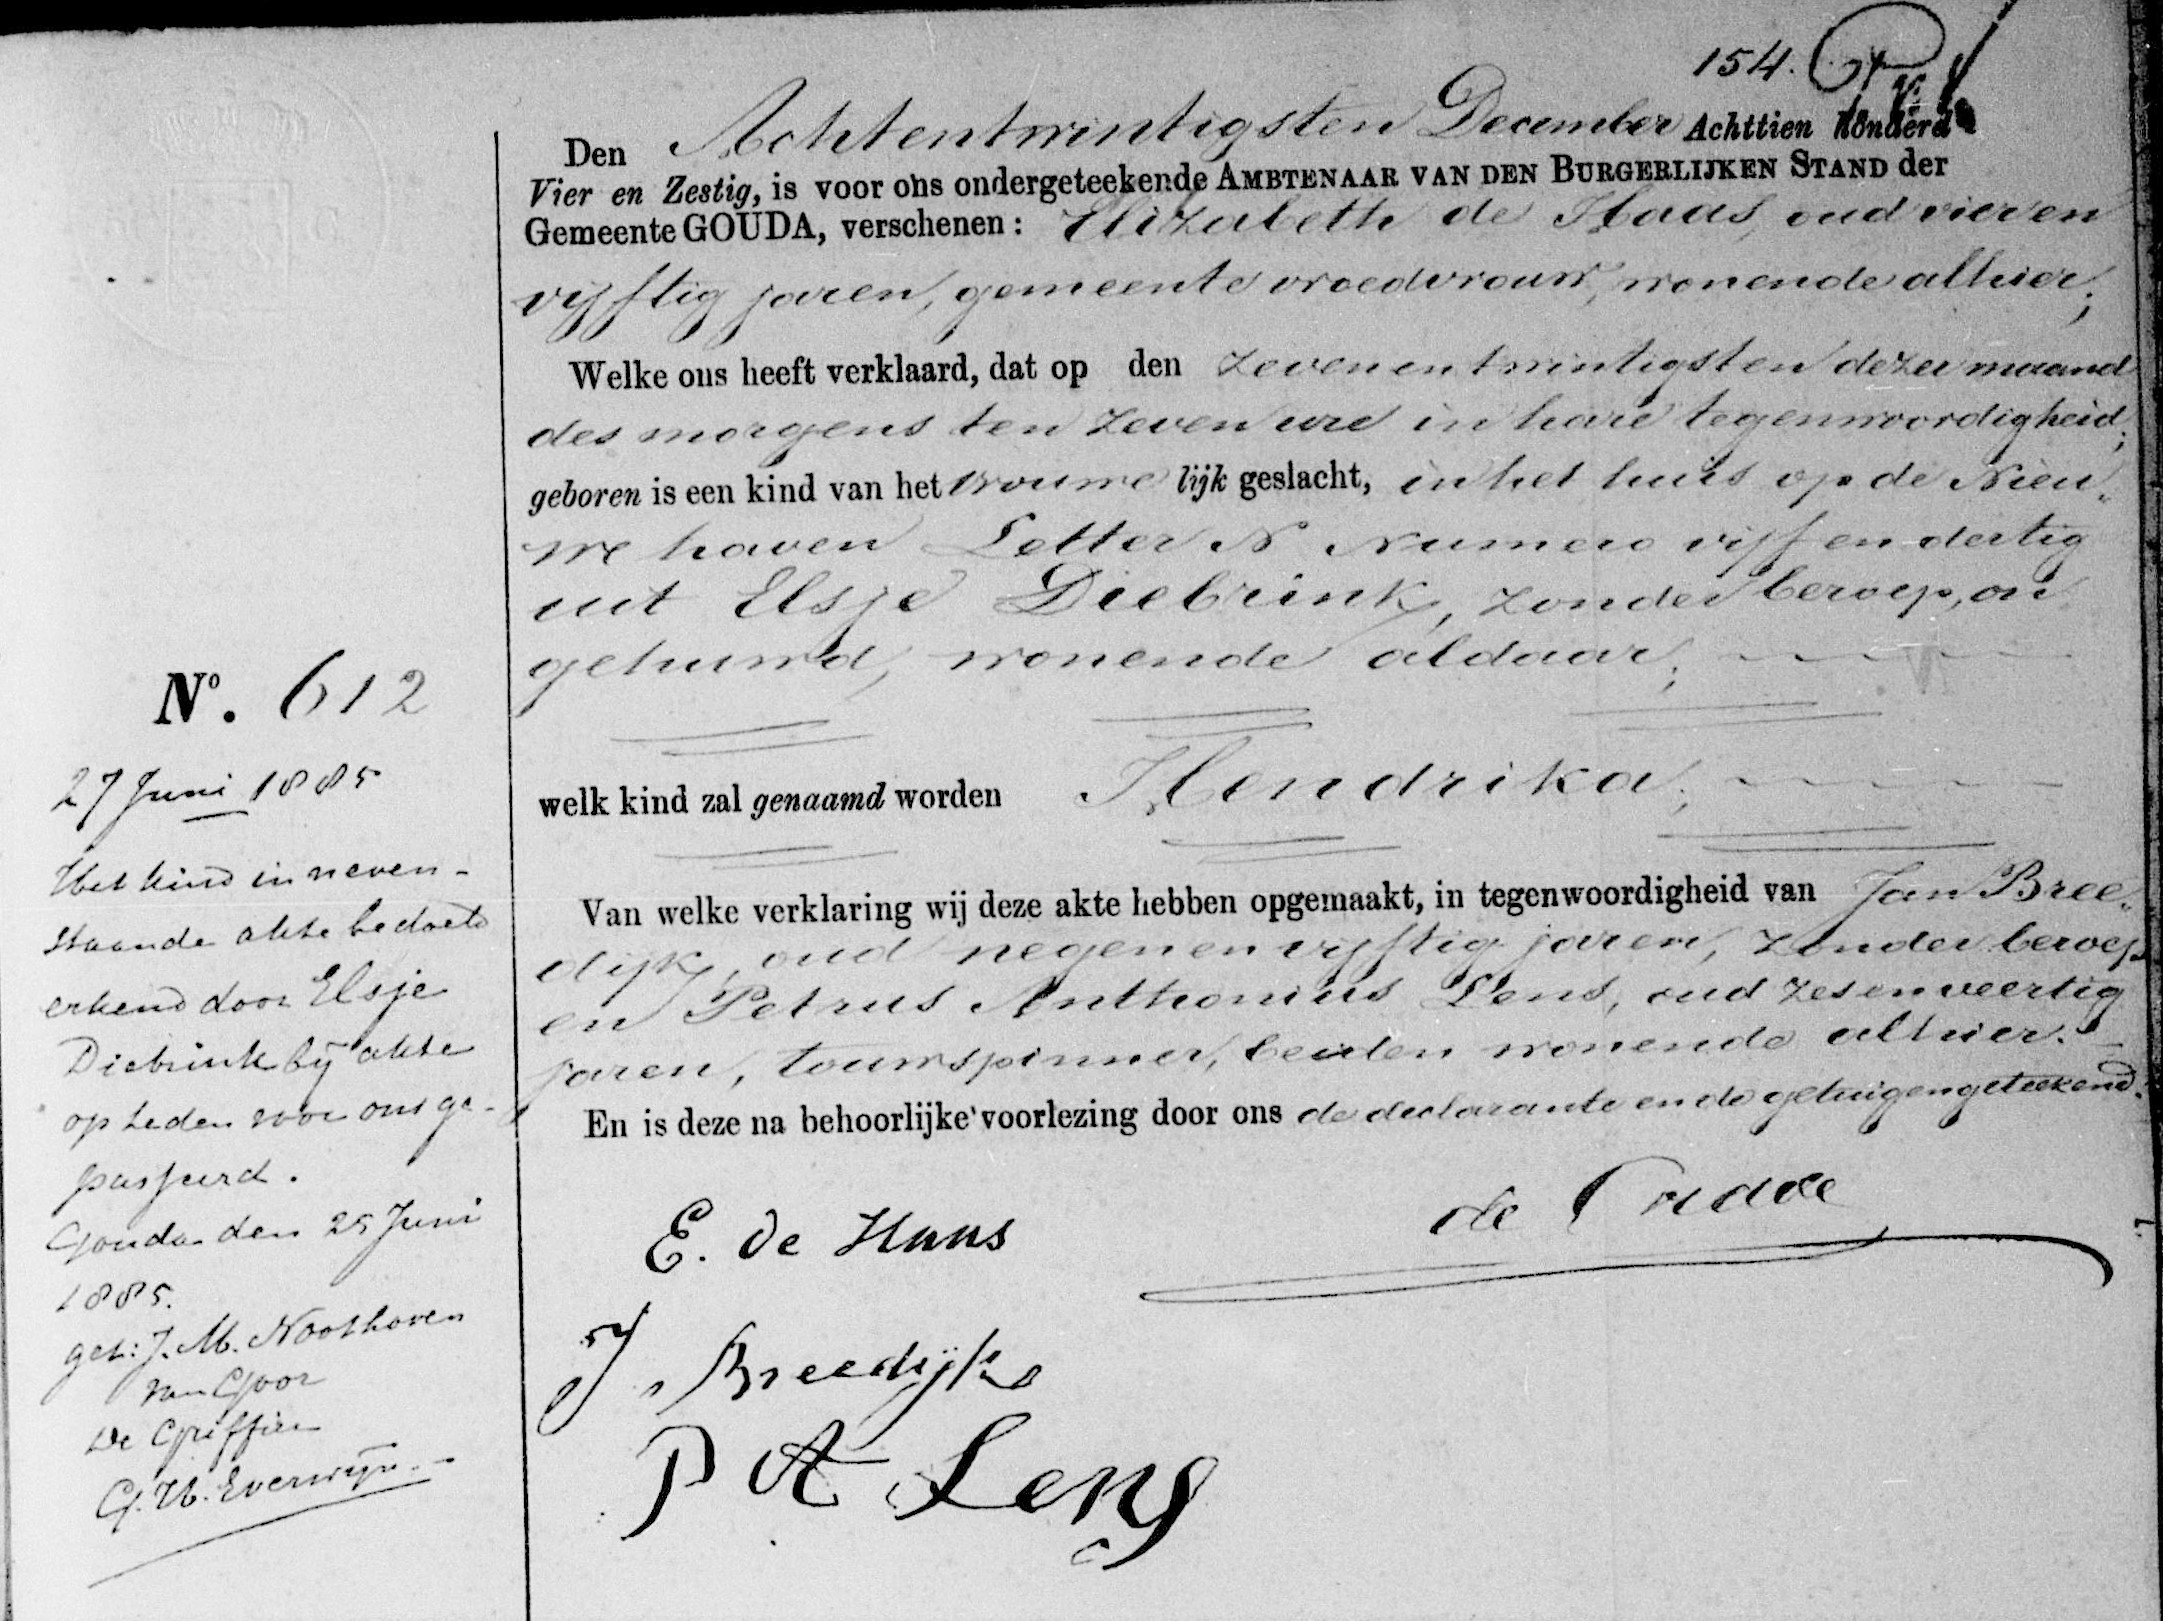 154.
Den Achtentwintigsten December Achttien honderd
Vier en Zestig, is voor ons ondergeteekende AMBTENAAR VAN DEN BURGERLIJKEN STAND der
Gemeente GOUDA, verschenen: Elizabeth de Haas, oud vier en
vijftig jaren, gemeente vroedvrouw, wonende alhier;
Welke ons heeft verklaard, dat op den zevenentwintigsten dezer maand
des morgens ten zeven ure in hare tegenwoordigheid;
geboren is een kind van het vrouwelijk geslacht, in het huis op de Nieu„
we haven Letter N Numero vijf en dertig
uit Elsje Diebrink, zonder beroep, on
gehuwd, wonende aldaar;
welk kind zal genaamd worden Hendrika;
Van welke verklaring wij deze akte hebben opgemaakt, in tegenwoordigheid van Jan Bree„
dijk, oud negen en vijftig jaren, zonder beroep
en Petrus Anthonius Lens, oud zes en veertig
jaren, touwspinner, beiden wonende alhier.
En is deze na behoorlijke voorlezing door ons de declarante en de getuigen geteekend.
E. de Haas
J. Breedijk
P A Lens
No. 612
27 Juni 1885
Het kind in neven-
staande akte bedoeld
erkend door Elsje
Diebrink bij akte
op heden voor ons ge-
passeerd.
Gouda den 25 Juni
1885.
get: J. M. Noothoven
van Goor
De Griffier
G. H. Everwijn.